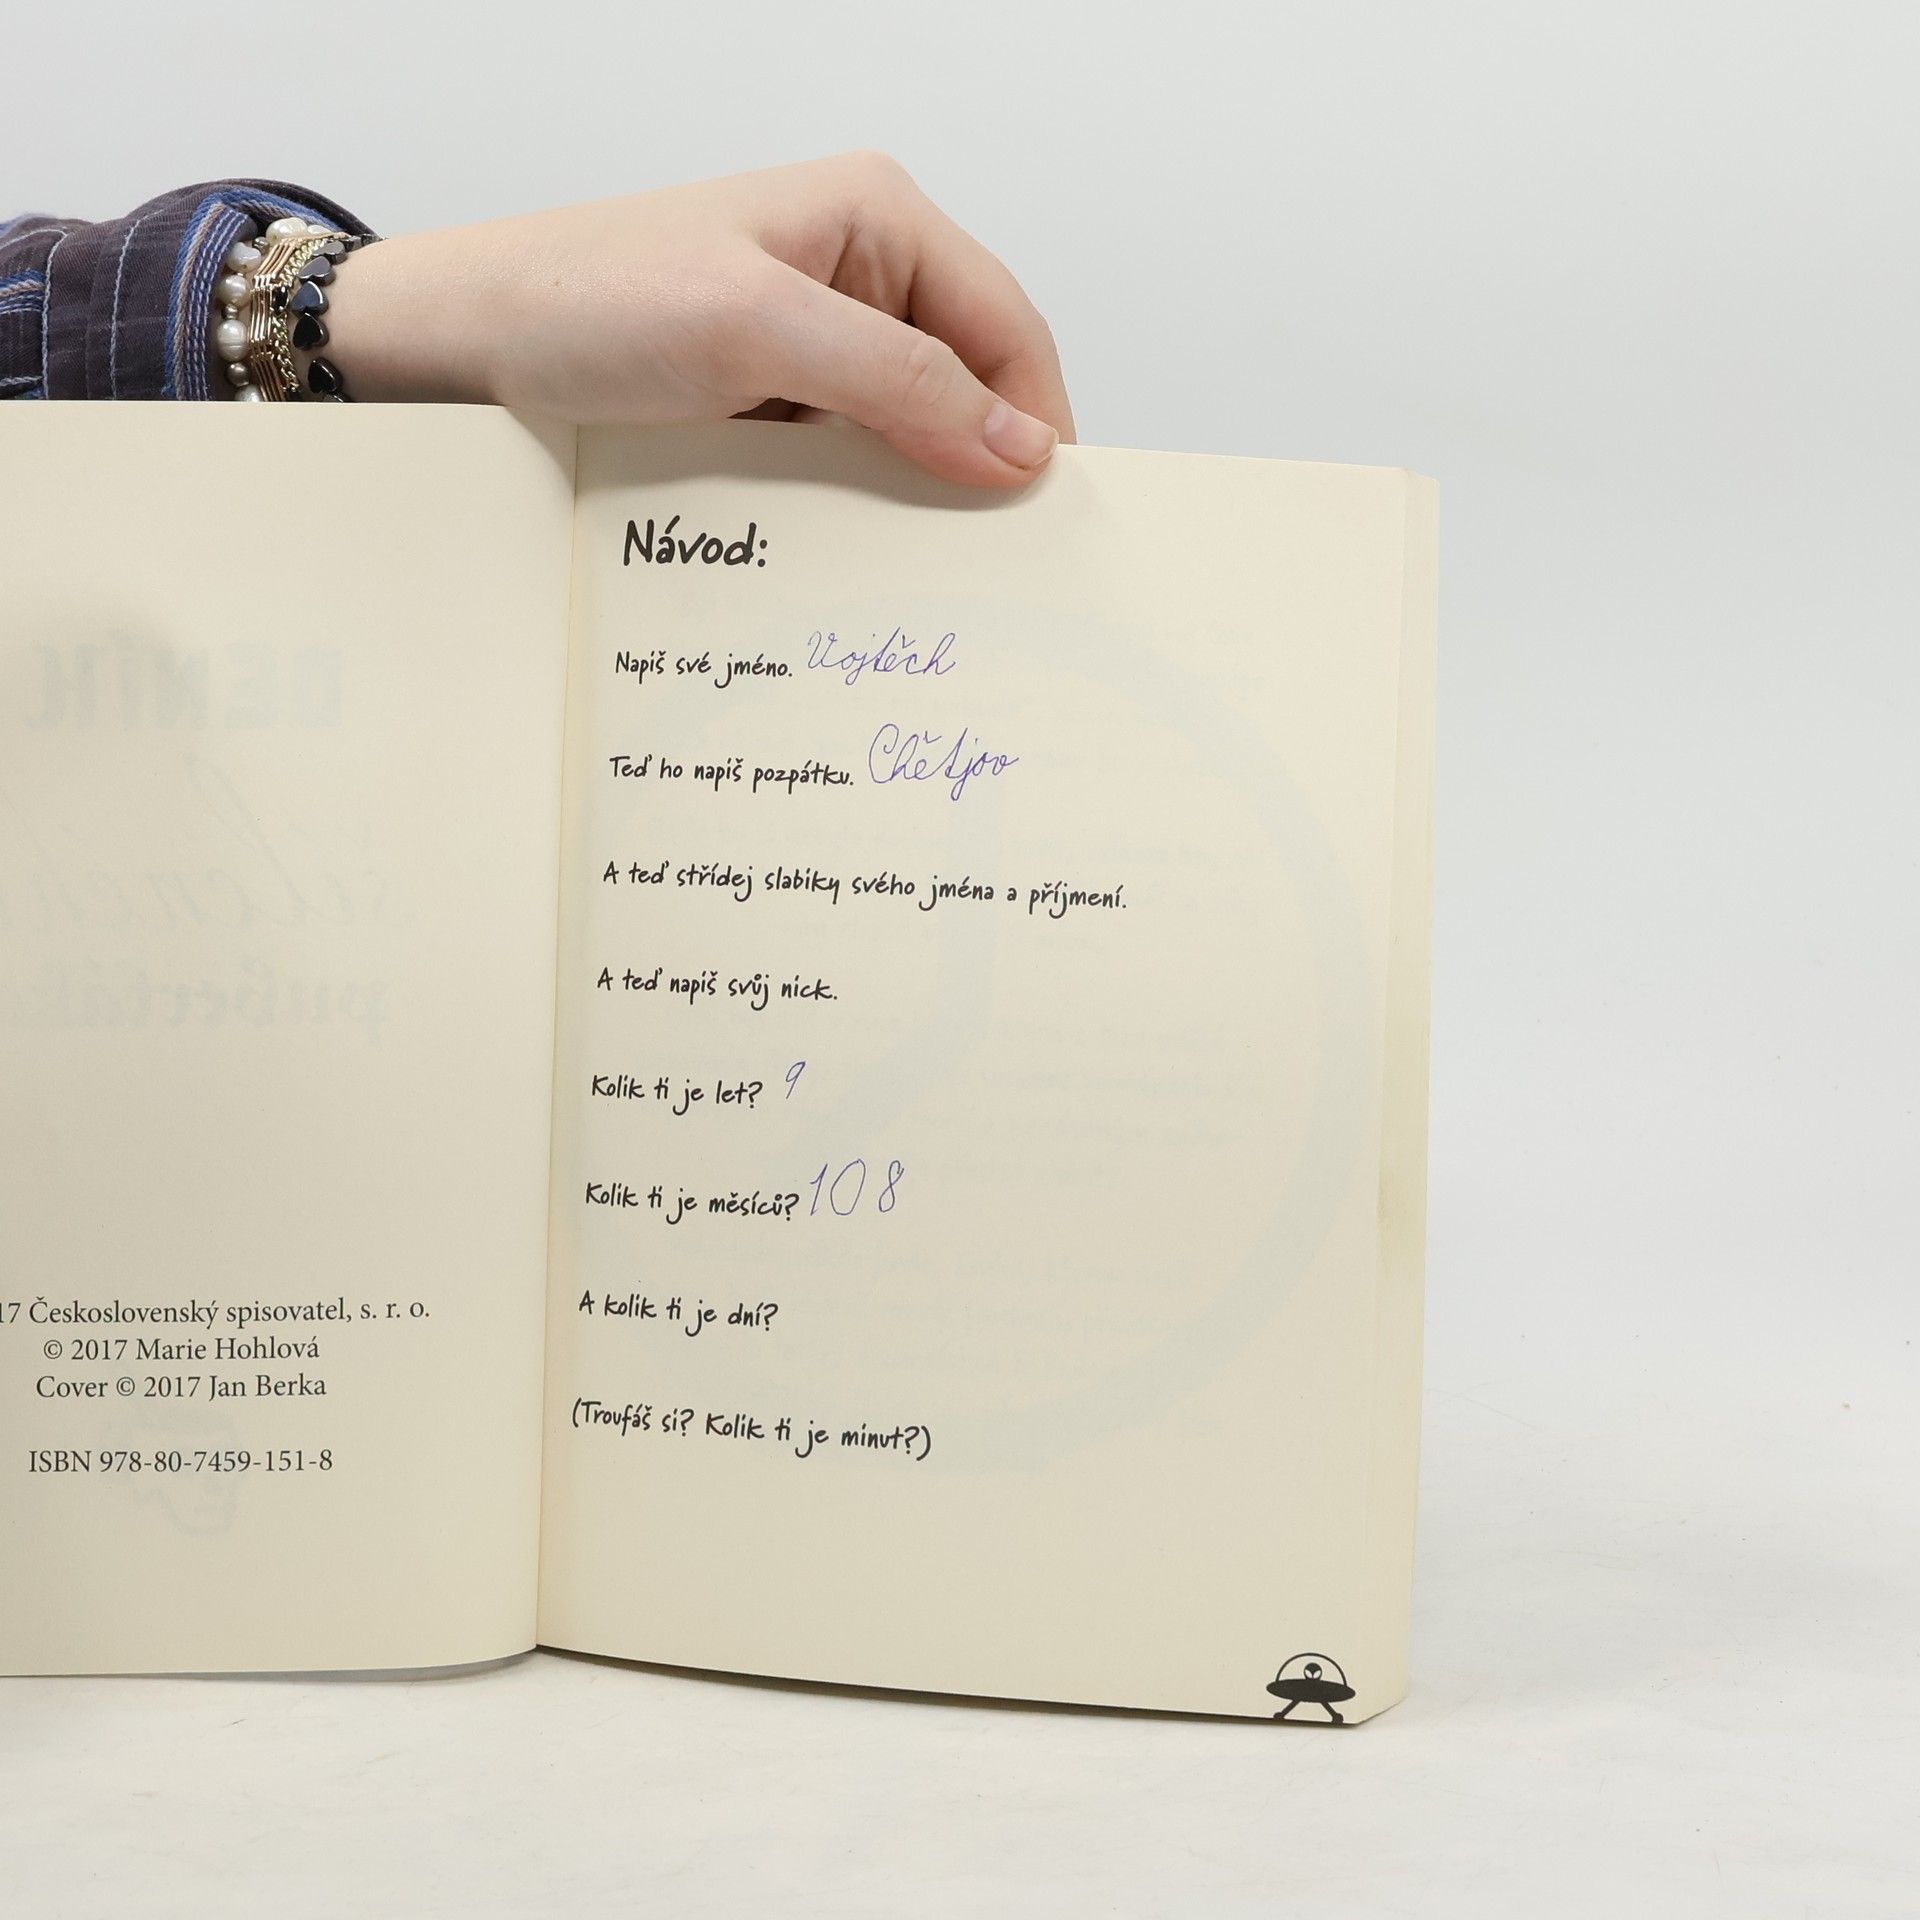 17 Československý spisovatel, s. r. o.
© 2017 Marie Hohlová
Cover © 2017 Jan Berka
ISBN 978-80-7459-151-8
Návod:
Napiš své jméno. Vojtěch
Teď ho napiš pozpátku. Chětjov
A teď střídej slabiky svého jména a příjmení.
A teď napiš svůj nick.
Kolik ti je let? 9
Kolik ti je měsíců? 108
A kolik ti je dní?
(Troufáš si? Kolik ti je minut?)